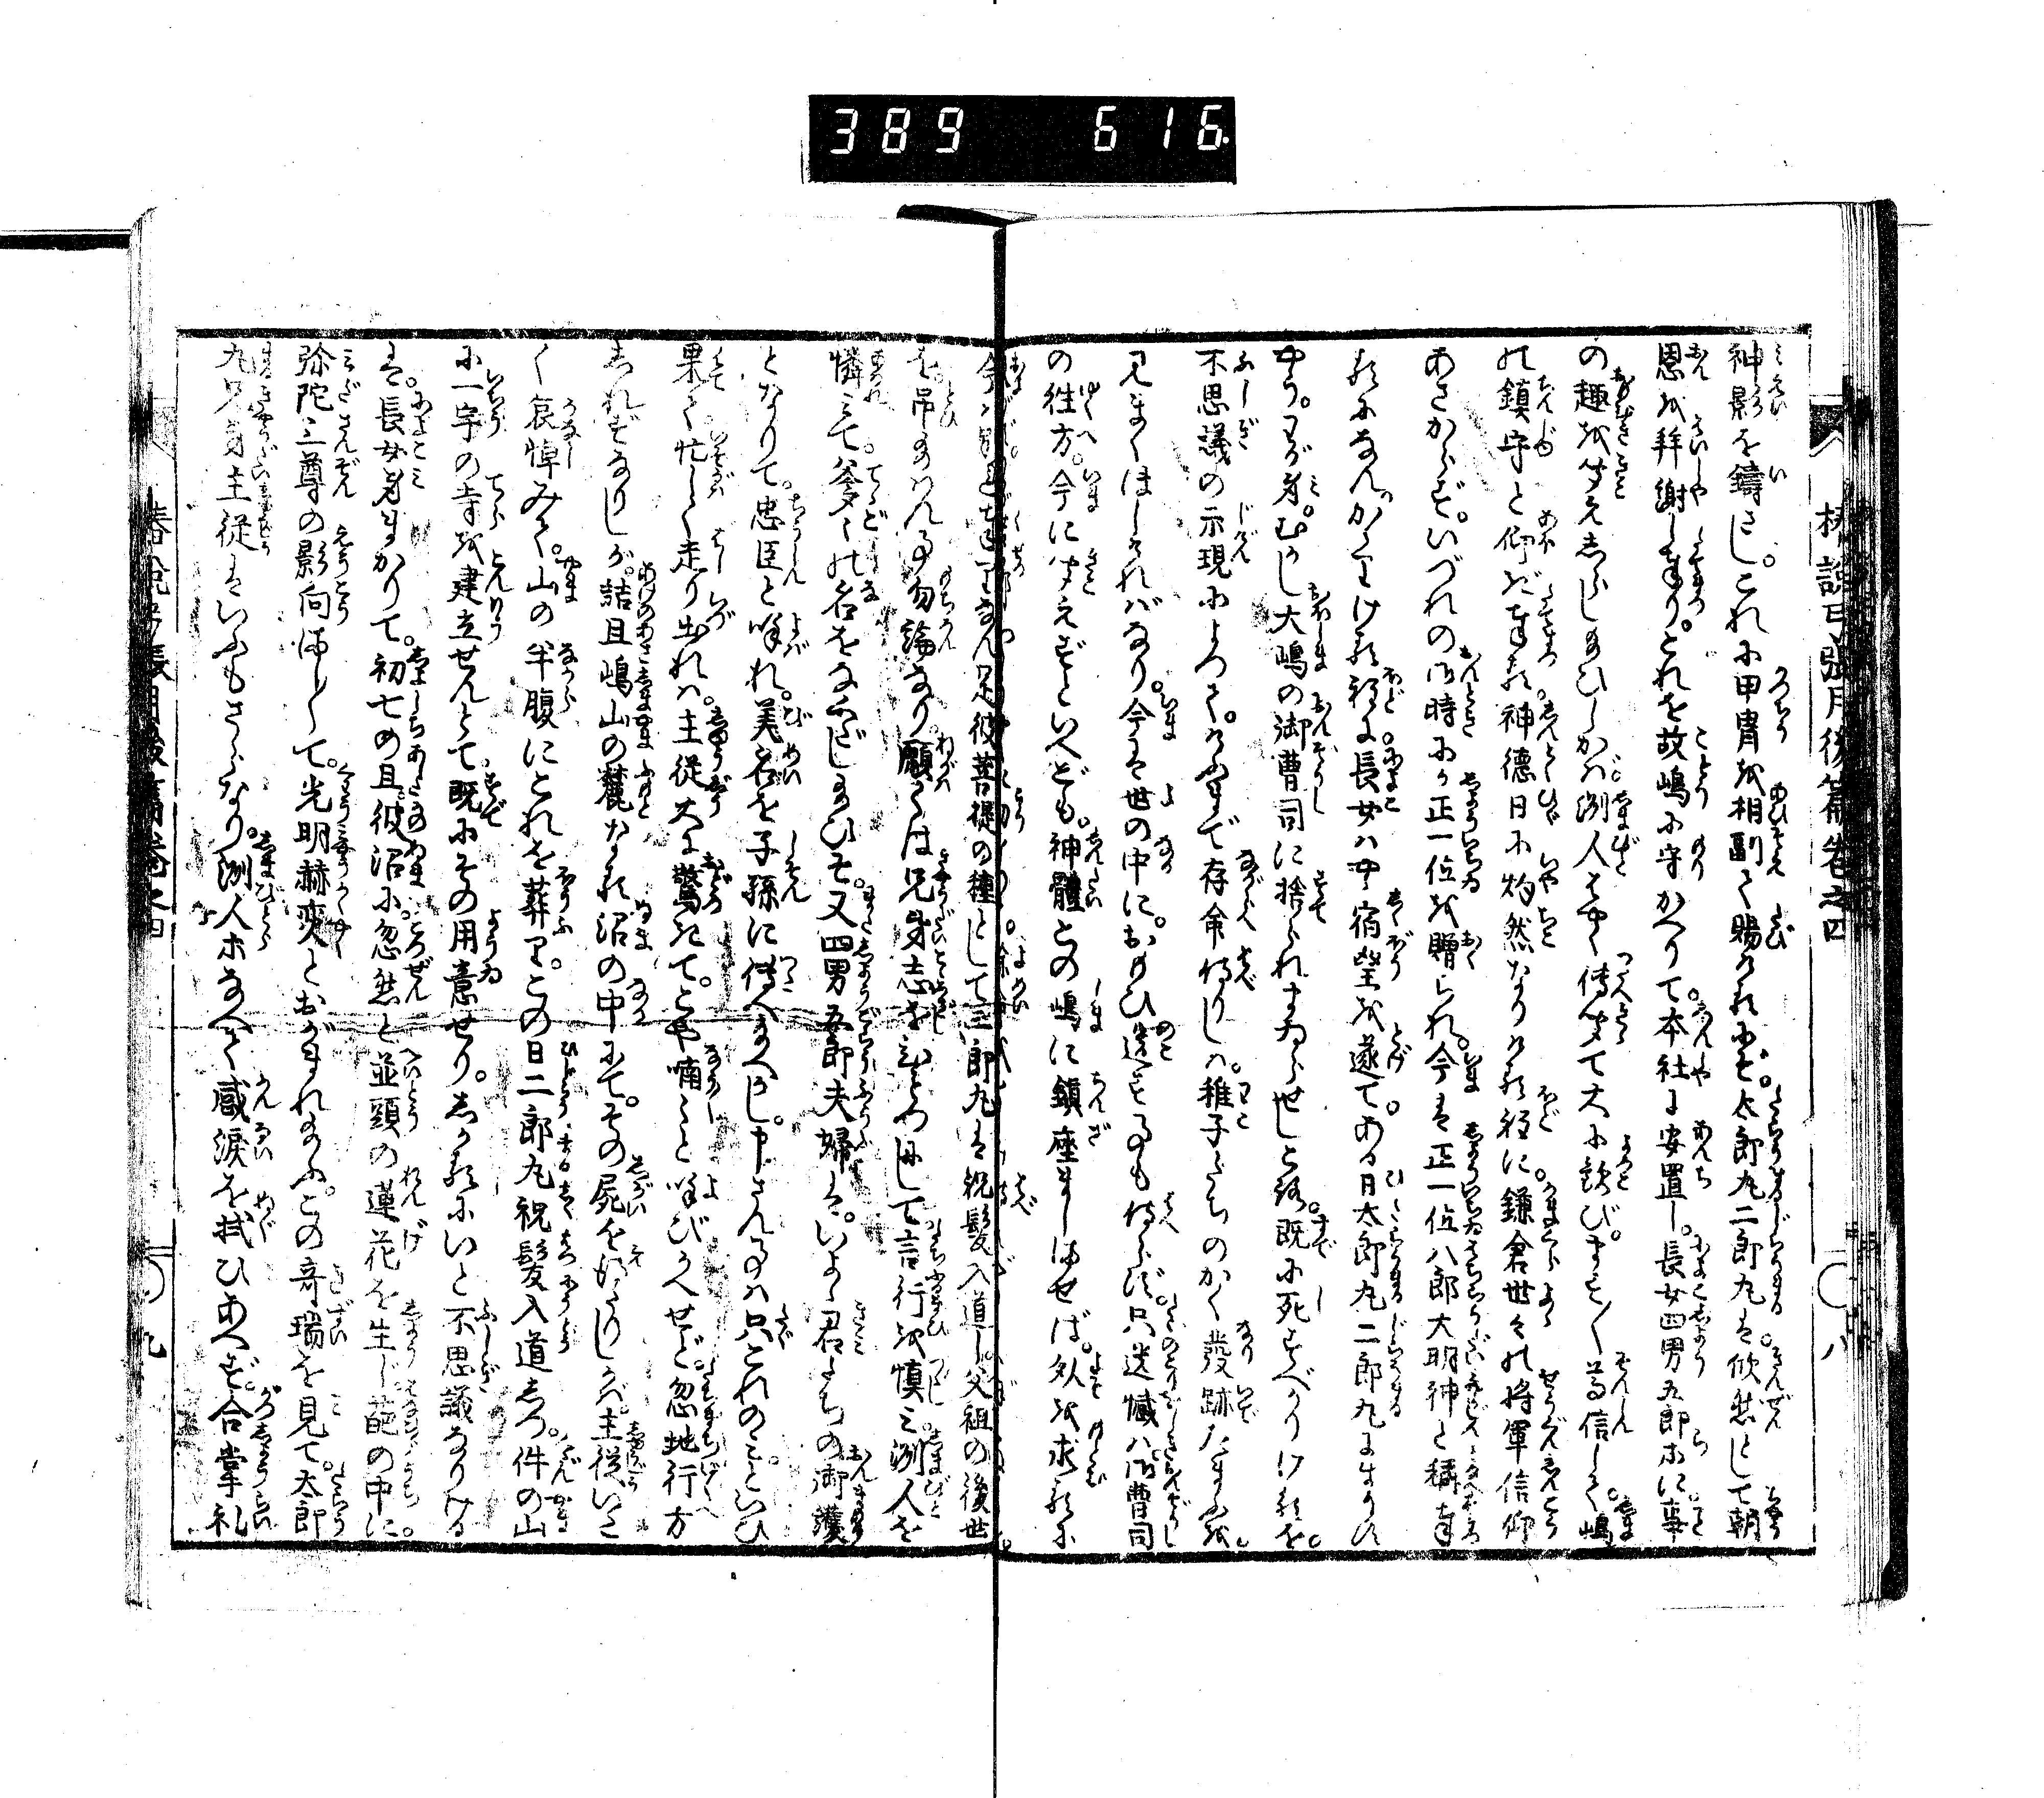 389 616
椿説弓張月後篇巻之四
神影を鑄さし。これに甲冑を相副て賜りければ。太郎丸二郎丸は欣然として朝
恩を拜謝し奉り。これを故嶋に守かへりて本社に安置し。長女四男五郎ホに事
の趣を聞えしらし給ひしかば洲人はやく傳聞て大に歓び。ます〳〵尊信して嶋
の鎮守と仰ぎ奉る神徳日に灼然なりける程に。鎌倉世々の将軍信仰
あさからず。いづれの御時にか正一位を贈られ。今は正一位八郎大明神と稱奉
るになん。かくりける程に長女は宿望を遂て。ある日太郎丸二郎丸にまうす
やう。わが身むかし大嶋の御曹司に捨られまゐらせしとき。既に死すべかりけるを。
不思議の示現によつて。けふまで存命侍りしは。稚子たちのかく發跡たまふを
見まくほしければなり。今は世の中に。おもひ遺すことも侍らず。只遺憾は御曹司
の往方。今に聞えずといへども。神體この嶋に鎮座ましませば。外を求るに
菩提の種として三郎丸は祝髪入道し。父祖の後世
を吊給はん事勿論なり。願くは兄弟志をひとつにして。言行を慎み洲人を
憐みて。爹々の名をな汚し給ひそ。又四男五郎夫婦は。いよ〳〵君たちの御護
となりて。忠臣と喚れ。美名を子孫に傳へ給へかし。申さん事は只これのみといひ
果て忙しく走り出れば。主従大に驚きて。こや喃々と喚びかへせど。忽地行方
しれずなりしが。詰旦嶋山の麓なる沼の中にて。その屍を得たりしかば。主従いた
く哀悼みて。山の半腹にこれを葬り。この日二郎丸祝髪入道しつ。件の山
に一宇の寺を建立せんとて既にその用意せり。しかるにいと不思議なりける
は。長女身まかりて。初七の旦。彼沼に忽然と並頭の蓮花を生じ葩の中に。
弥陀三尊の影向ましまして。光明赫奕とおがまれ給ふ。この奇瑞を見て。太郎
丸兄弟主従はいふもさらなり。洲人ホなべて感涙を拭ひあへず。合掌礼